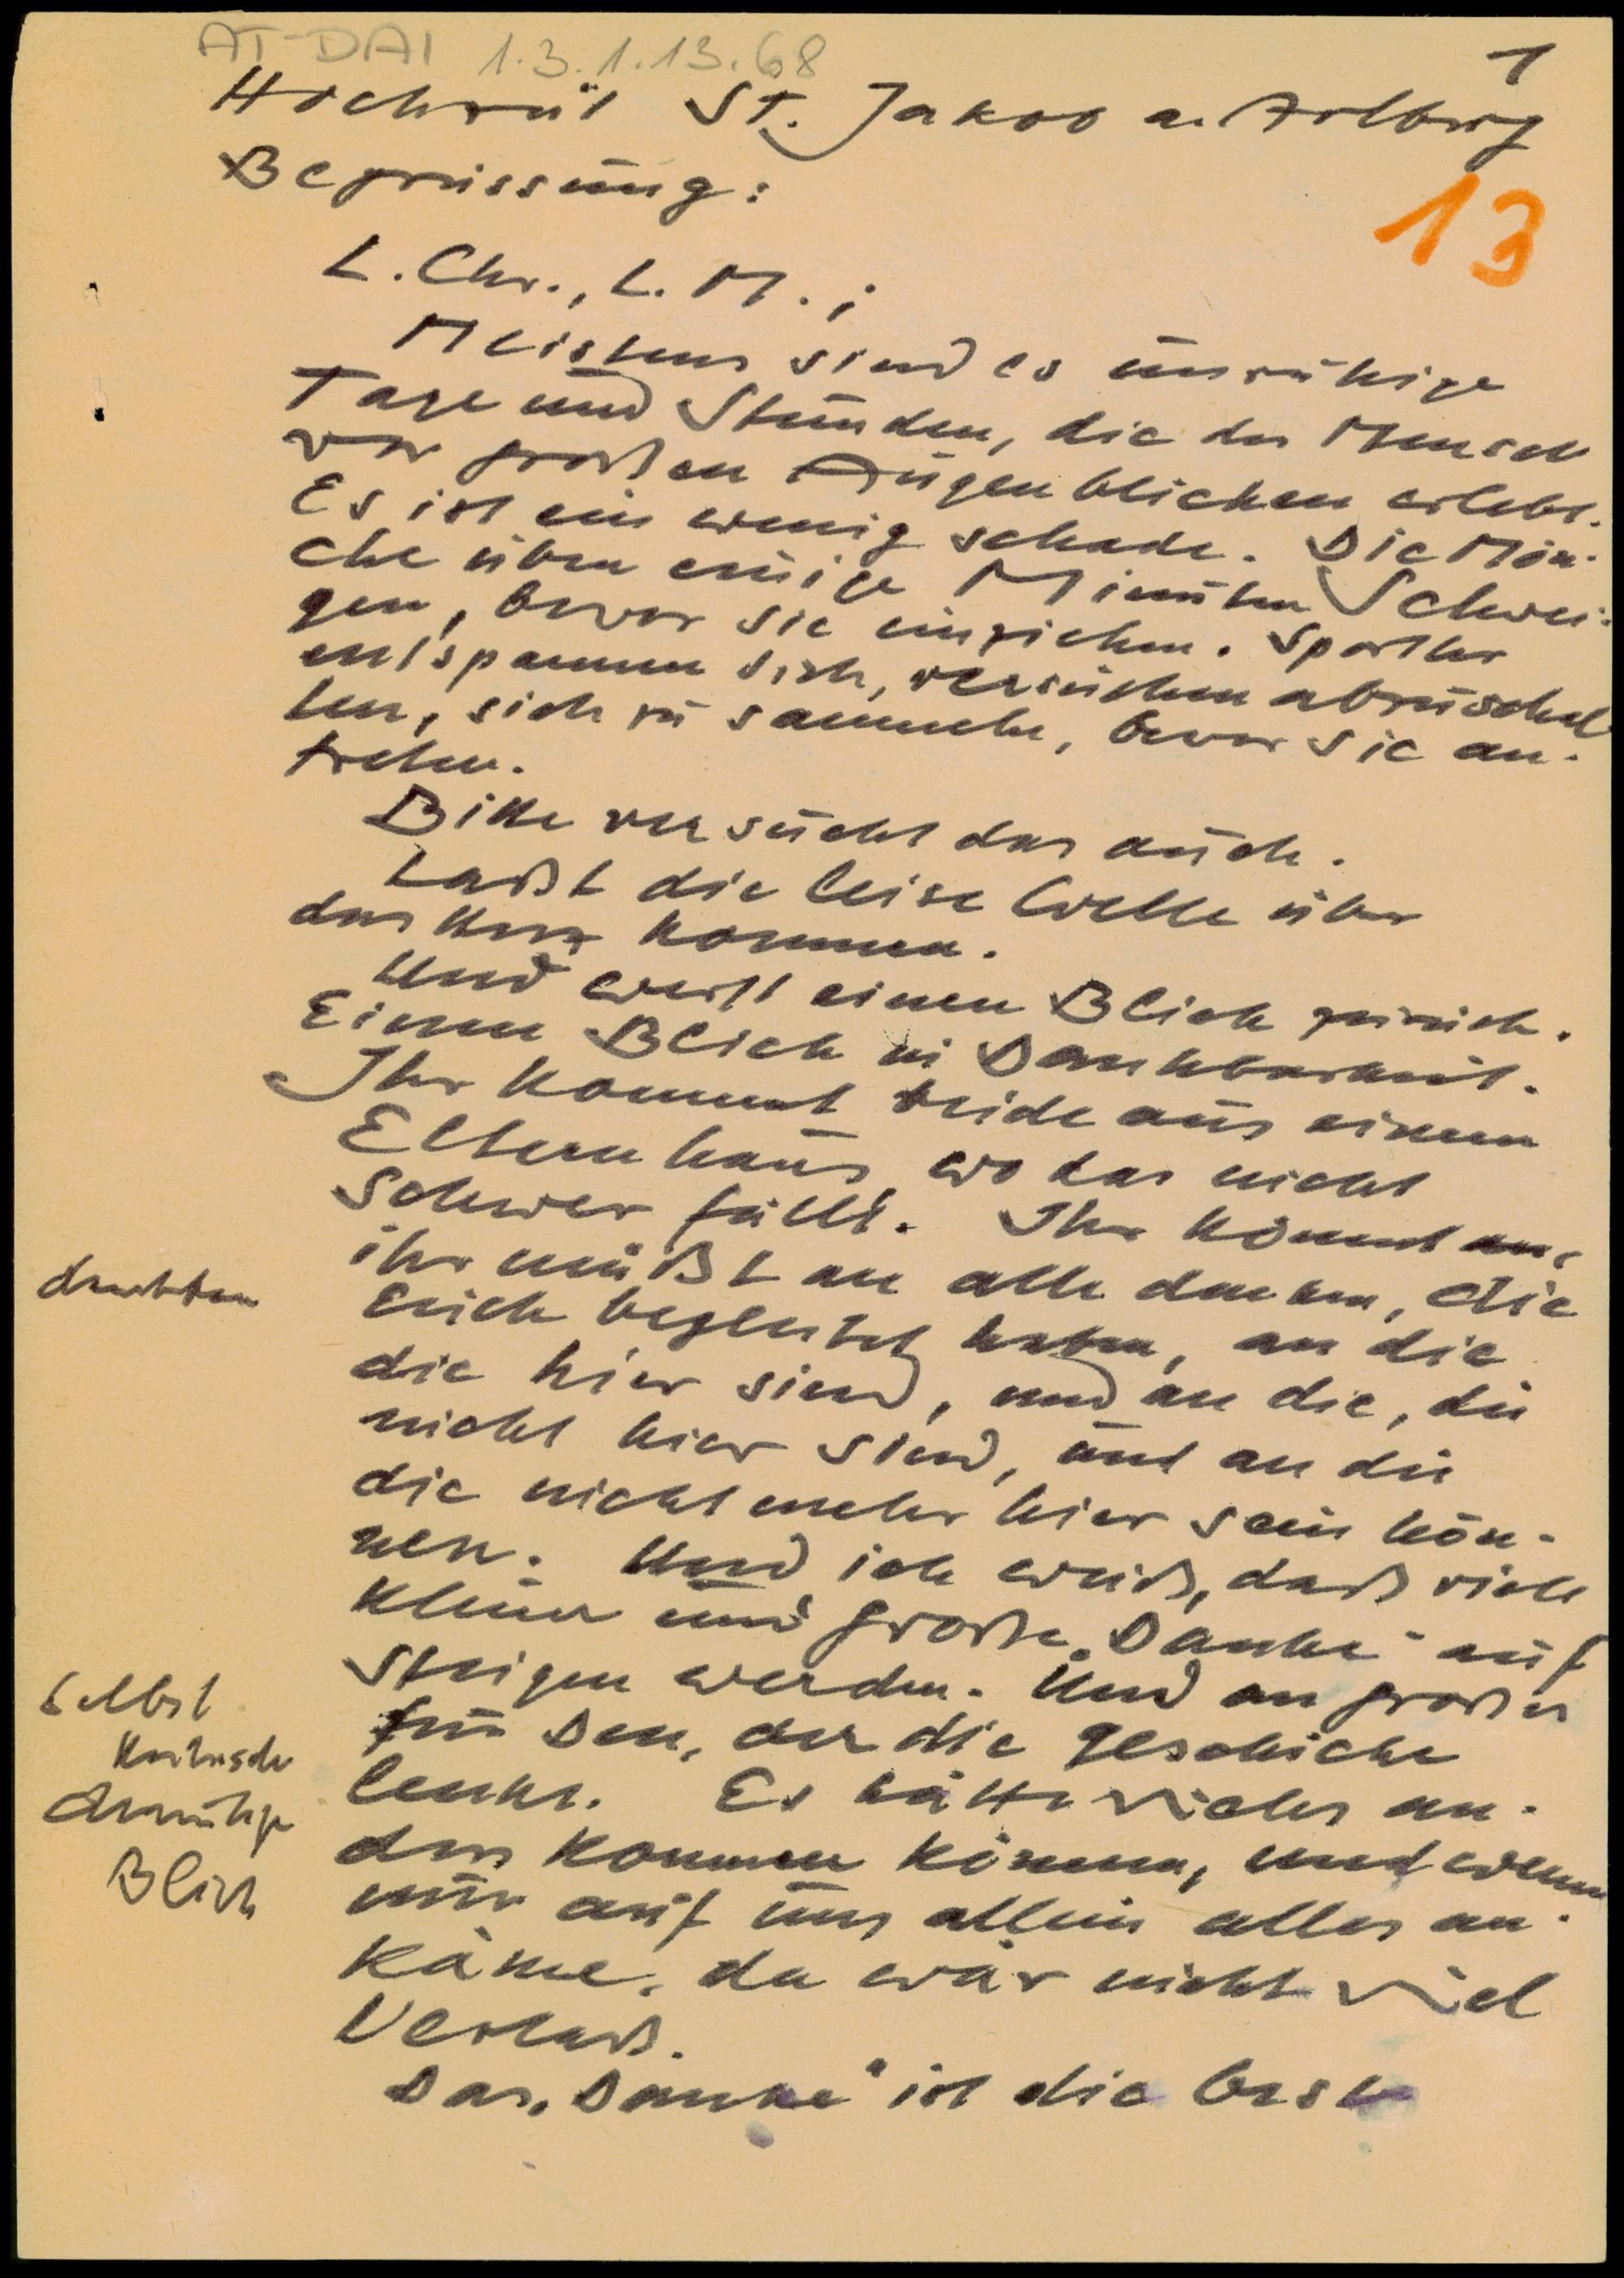 AT-DAI 1.3.1.13.68
1
Hochzeit St. Jakob a. Arlberg
Begrüssung:
13
L. Chr., L. M.;
Meistens sind es unruhige
Tage und Stunden, die der Mensch
vor großen Augenblicken erlebt.
Es ist ein wenig schade. Die Mön-
che üben einige Minuten Schwei-
gen, bevor sie einziehen. Sportler
entspannen sich, versuchen abzuschal
ten, sich zu sammeln, bevor sie an-
treten.
Bitte versucht das auch.
Laßt die leise Welle über
das Herz kommen.
Und werft einen Blick zurück.
Einen Blick in Dankbarkeit.
Ihr kommt beide aus einem
Elternhaus, wo das nicht
schwer fällt. Ihr könnt
ihr müßt an alle denken, die
Euch begleitet haben, an die
die hier sind, und an die, die
nicht hier sind, und an die
die nicht mehr hier sein kön-
nen. Und ich weiß, daß viele
kleine und große „Danke" auf
steigen werden. Und ein großes
für Den, der die Geschicke
lenkt. Es hätte vieles an-
ders kommen können, und wenn
nur auf uns allein alles an-
käme, da wär nicht viel
Verlaß.
Das „Danke" ist die beste
Selbst
kritische
demütige
Blick